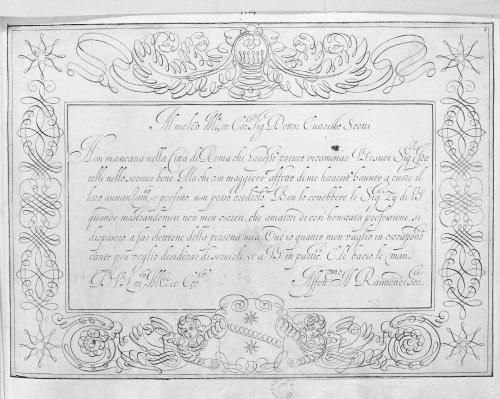 Al molto Ill.re et Ecc.te Sig.r Dottor Scotti
Non mancava nella Città di Roma chi havesse potuto incaminar V.S. e suoi Sig.ri fra
telli nello scriver bene. Ma chi con maggior affetto di me havesse havuto a cuore il
loro e profitto, non posso creder. Ben lo conobbero li Sig.ri di V.S.
quando mostrandomi non men che amatori di così honorata professione, si
disposero a far elettione della persona mia. Ond'io quanto men vaglio in
tanto più voglio desideroso di servirli, et a V.S. in E le bacio le mani.
D. V.S. Ill.re et Ecc.te Aff.mo Raimondi